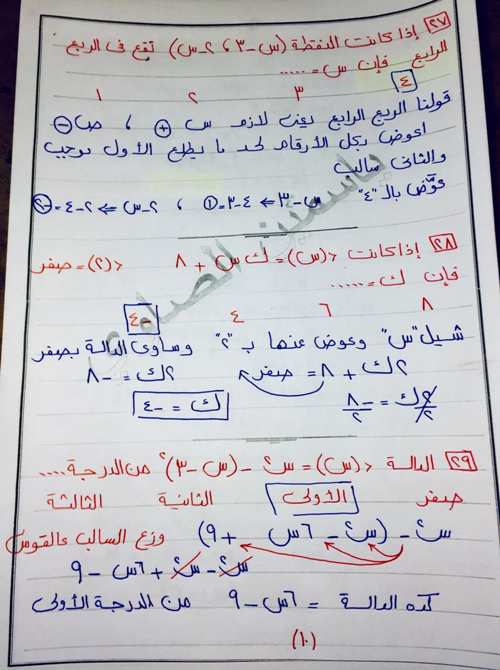 ٢٧ إذا كانت النقطة (س - ٣ ، ٢ - س) تقع فى الربع
الرابع فإن س = ......
١ ٢ ٣ ٤
قولنا الربع الرابع يعنى لازم س + ، ص -
اعوض بكل الأرقام لحد ما يطلع الأول موجب
والثانى سالب
عوَّض بالـ "٤" س - ٣ ⇐ ٤ - ٣ = ١ ، ٢ - س ⇐ ٢ - ٤ = -٢
ياسمين الصداوي
٢٨ إذا كانت د(س) = ك س + ٨ د(٢) = صفر
فإن ك = ......
٨ ٦ ٤ -٤
شيل "س" وعوض عنها بـ "٢" وساوى الدالة بصفر
٢ك + ٨ = صفر ٢ك = - ٨
٢ك/٢ = -٨/٢ ك = - ٤
٢٩ الدالة د(س) = س² - (س - ٣)² من الدرجة ....
صفر الأولى الثانية الثالثة
س² - (س² - ٦س + ٩) وزع السالب عالقوس
س² - س² + ٦س - ٩
كده الدالة = ٦س - ٩ من الدرجة الأولى
(١٠)